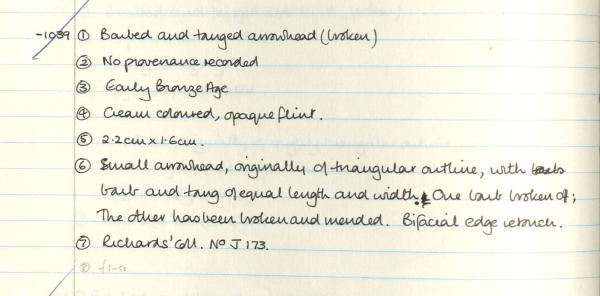 -1039 ① Barbed and tanged arrowhead (broken)
② No provenance recorded
③ Early Bronze Age
④ Cream coloured, opaque flint.
⑤ 2.2cm x 1.6cm.
⑥ Small arrowhead, originally of triangular outline, with
barb and tang of equal length and width. One barb broken of;
The other has been broken and mended. Bifacial edge retouch.
⑦ Richards' Coll. No J 173.
⑧